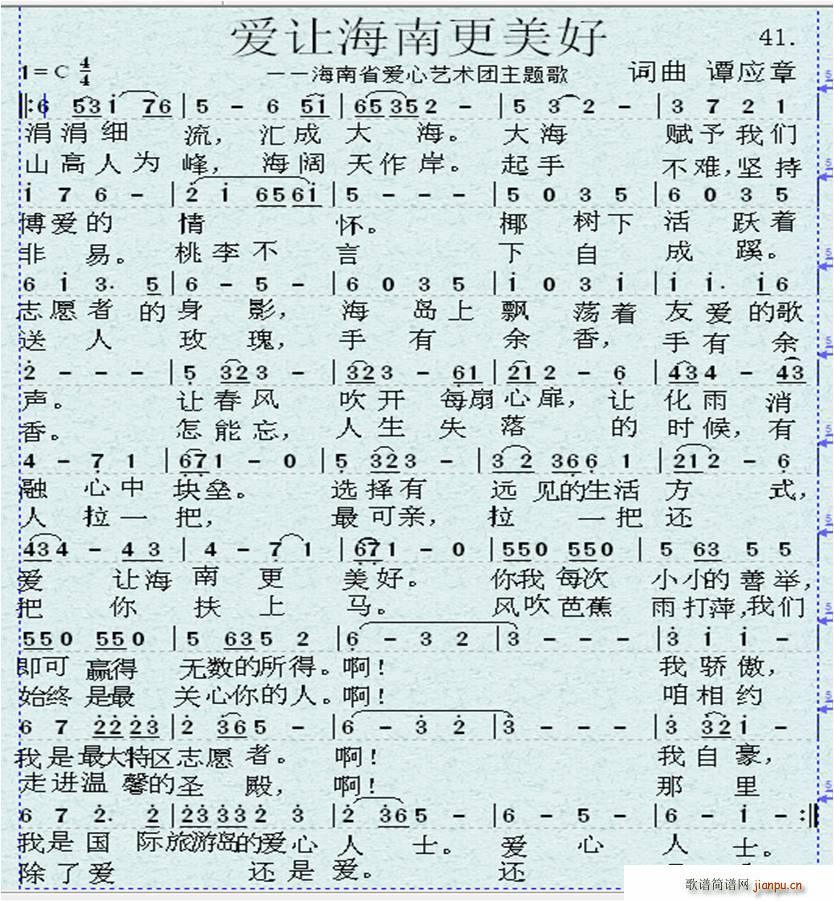 爱让海南更美好
41.
1=C 4/4
——海南省爱心艺术团主题歌
词曲 谭应章
‖:6 53i 76 | 5 - 6 5i | 65352 - | 5 3 2 - | 3 7 2 1
涓涓细 流，汇成 大 海。 大海 赋予我们
山高人为峰，海阔 天作岸。 起手 不难,坚持
i 7 6 - | 2 i 656i | 5 - - - | 5 0 3 5 | 6 0 3 5
博爱的 情 怀。 椰 树下 活 跃着
非 易。 桃李不 言 下 自 成 蹊。
6 i 3. 5 | 6 - 5 - | 6 0 3 5 | i 0 3 i | i i. i6
志愿者 的身 影， 海 岛上 飘 荡着 友 爱的歌
送 人 玫 瑰， 手 有 余 香， 手有 余
2 - - - | 5 323 - | 323 - 61 | 212 - 6 | 434 - 43
声。 让春风 吹开 每扇心扉，让 化雨 消
香。 怎能忘， 人生 失 落 的 时候，有
4 - 7 1 | 671 - 0 | 5 323 - | 3 2 366 1 | 212 - 6
融 心中 块垒。 选择有 远 见的生活 方 式，
人 拉一 把， 最可亲，拉 一把 还
434 - 43 | 4 - 7 1 | 671 - 0 | 550 550 | 5 63 5 5
爱 让海 南 更 美好。 你我 每次 小小的 善举，
把 你 扶 上 马。 风吹芭蕉 雨打萍,我们
550 550 | 5 635 2 | 6 - 3 2 | 3 - - - | 3 i i -
即可 赢得 无数的所得。啊！ 我 骄傲，
始终 是最 关心你的人。啊！ 咱相约
6 7 2223 | 2 365 - | 6 - 3 2 | 3 - - - | 3 32i -
我是最大特区志愿 者。 啊！ 我自豪，
走进温 馨的圣 殿， 啊！ 那 里
6 7 2. 2 | 23332 3 | 2 365 - | 6 - 5 - | 6 - i - :‖
我是国 际旅游岛的爱心 人 士。 爱 心 人 士。
除了爱 还是 爱。 还
歌谱简谱网 jianpu.cn